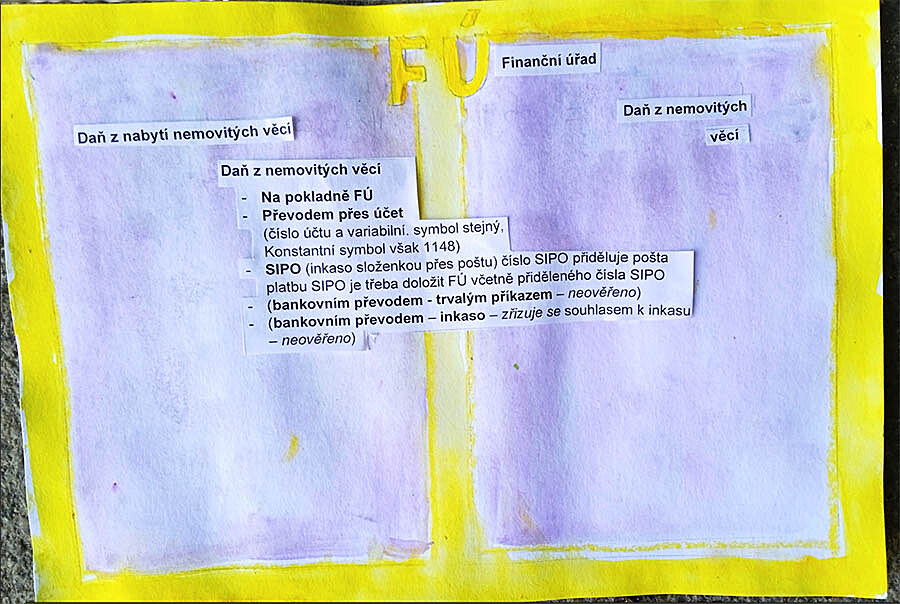 FÚ
Finanční úřad
Daň z nemovitých
věcí
Daň z nabytí nemovitých věcí
Daň z nemovitých věcí
- Na pokladně FÚ
- Převodem přes účet
(číslo účtu a variabilní. symbol stejný,
Konstantní symbol však 1148)
- SIPO (inkaso složenkou přes poštu) číslo SIPO přiděluje pošta
platbu SIPO je třeba doložit FÚ včetně přiděleného čísla SIPO
- (bankovním převodem - trvalým příkazem – neověřeno)
- (bankovním převodem – inkaso – zřizuje se souhlasem k inkasu
– neověřeno)